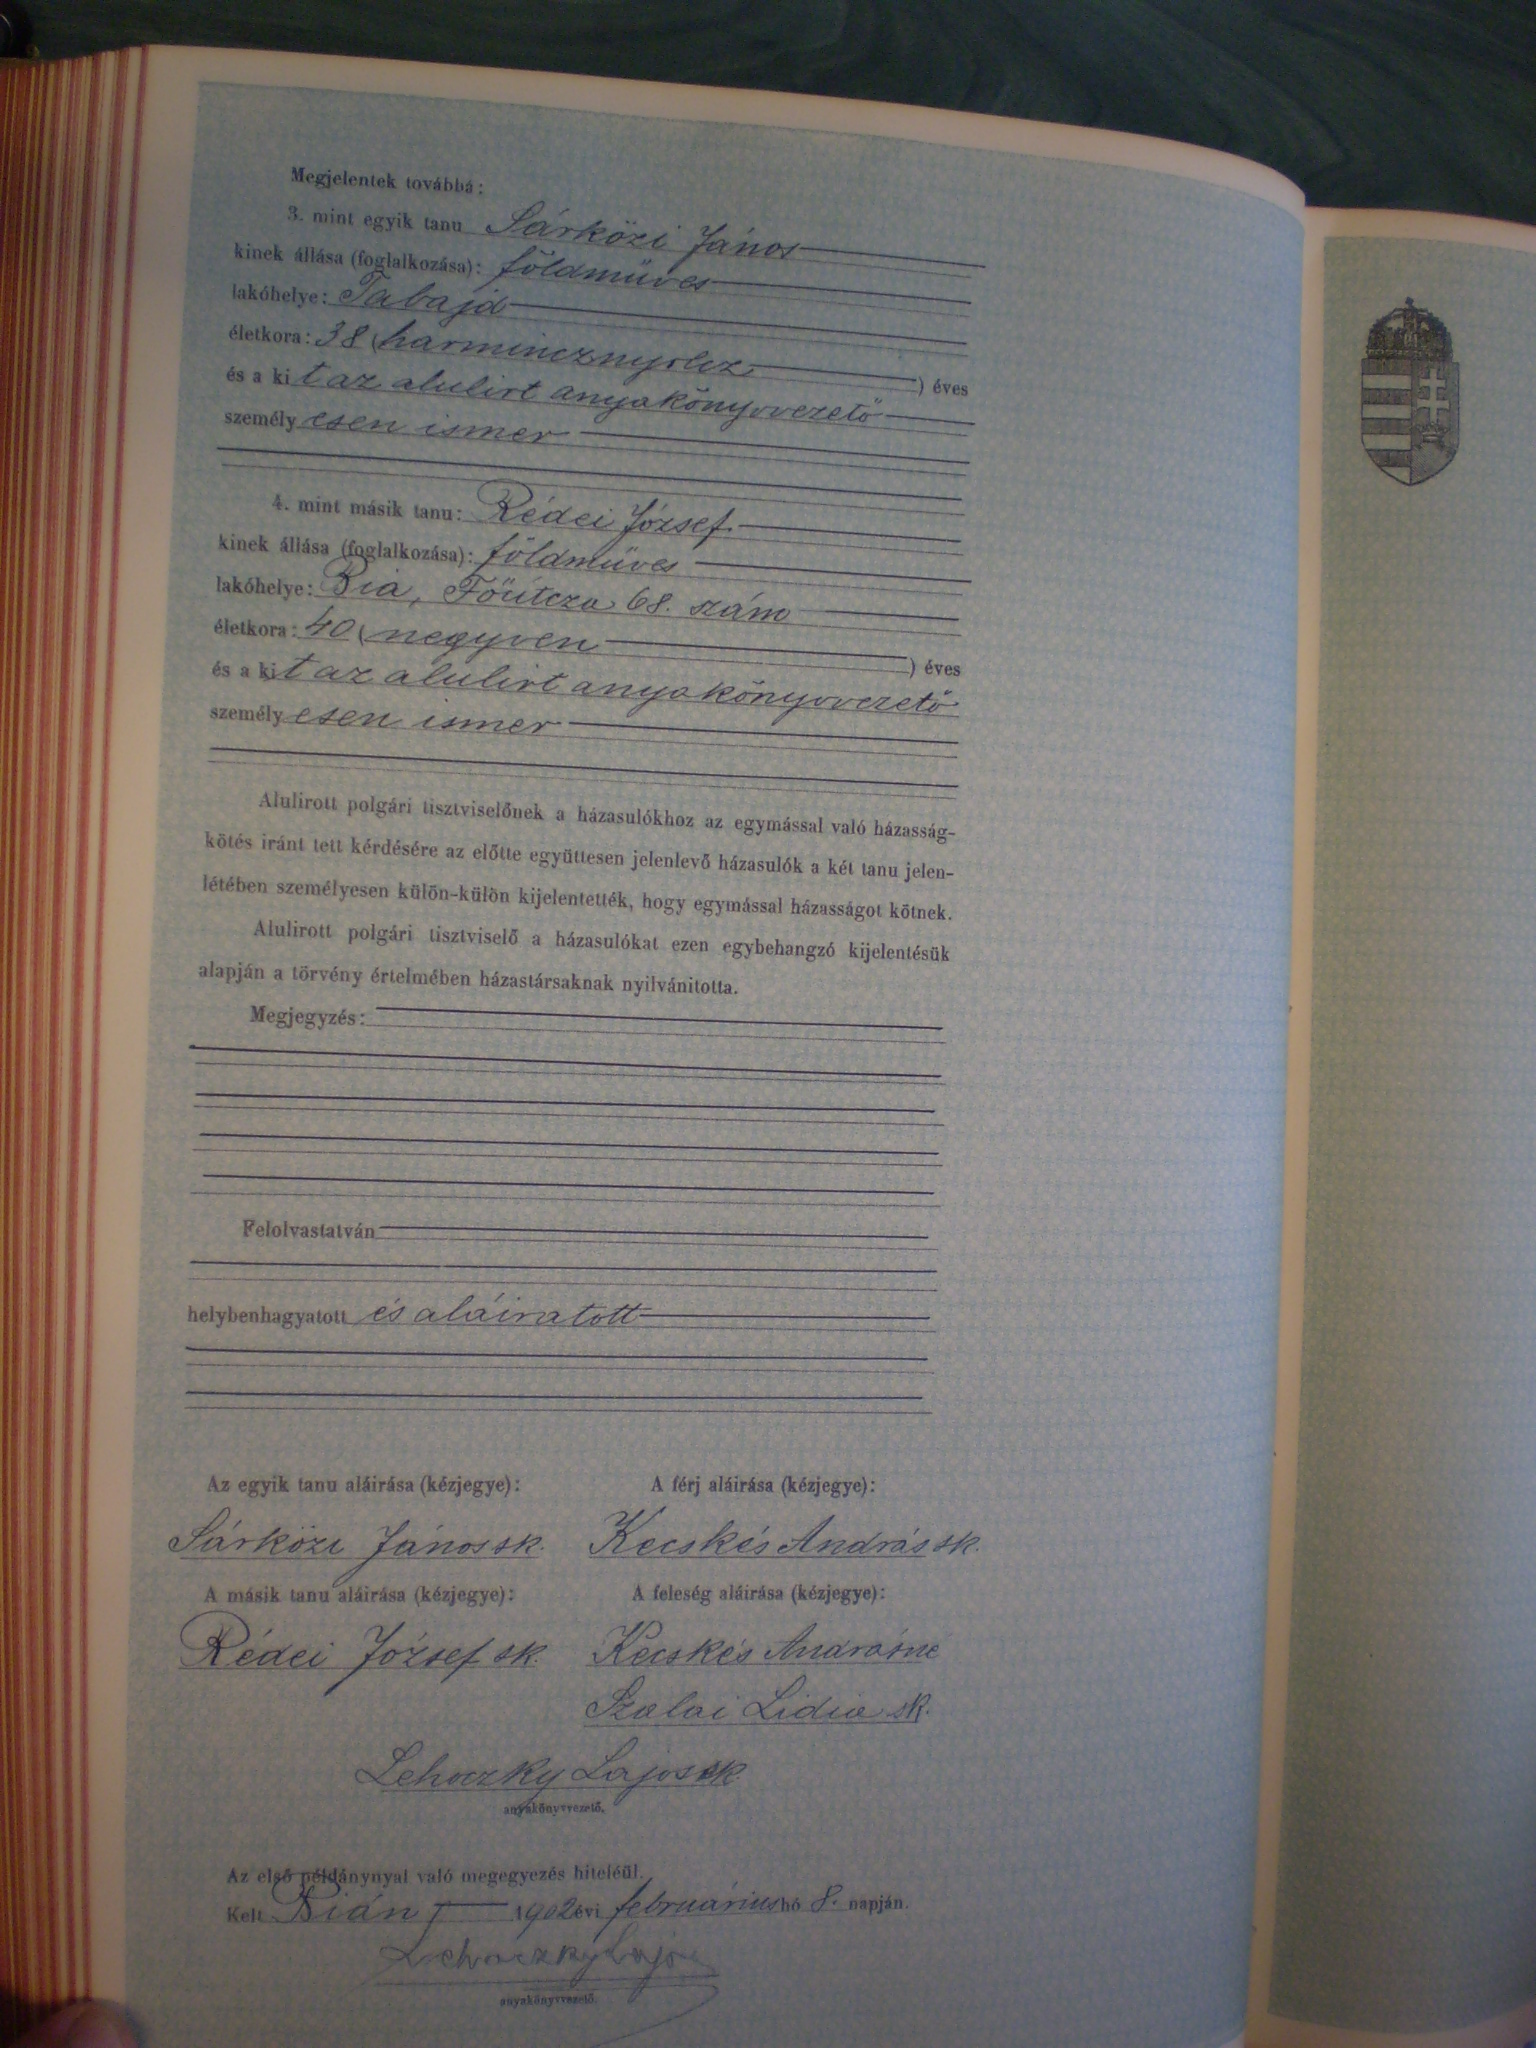 Megjelentek továbbá:
3. mint egyik tanu Sárközi János
kinek állása (foglalkozása): földmüves
lakóhelye: Tabajd
életkora: 38 (harmincznyolcz) éves
és a kit az alulirt anyakönyvvezető
személyesen ismer
4. mint másik tanu: Rédei József
kinek állása (foglalkozása): földmüves
lakóhelye: Bia, Főútcza 68. szám
életkora: 40 (negyven) éves
és a kit az alulirt anyakönyvvezető
személyesen ismer
Alulirott polgári tisztviselőnek a házasulókhoz az egymással való házasság-
kötés iránt tett kérdésére az előtte együttesen jelenlevő házasulók a két tanu jelen-
létében személyesen külön-külön kijelentették, hogy egymással házasságot kötnek.
Alulirott polgári tisztviselő a házasulókat ezen egybehangzó kijelentésük
alapján a törvény értelmében házastársaknak nyilvánitotta.
Megjegyzés:
Felolvastatván
helybenhagyatott és aláiratott
Az egyik tanu aláirása (kézjegye): A férj aláirása (kézjegye):
Sárközi János sk. Kecskés András sk.
A másik tanu aláirása (kézjegye): A feleség aláirása (kézjegye):
Rédei József sk. Kecskés Andrásné
Szalai Lidia sk.
Lehoczky Lajos sk.
anyakönyvvezető.
Az első példánynyal való megegyezés hiteléül.
Kelt Bián 1902 évi februárius hó 8. napján.
Lehoczky Lajos
anyakönyvvezető.